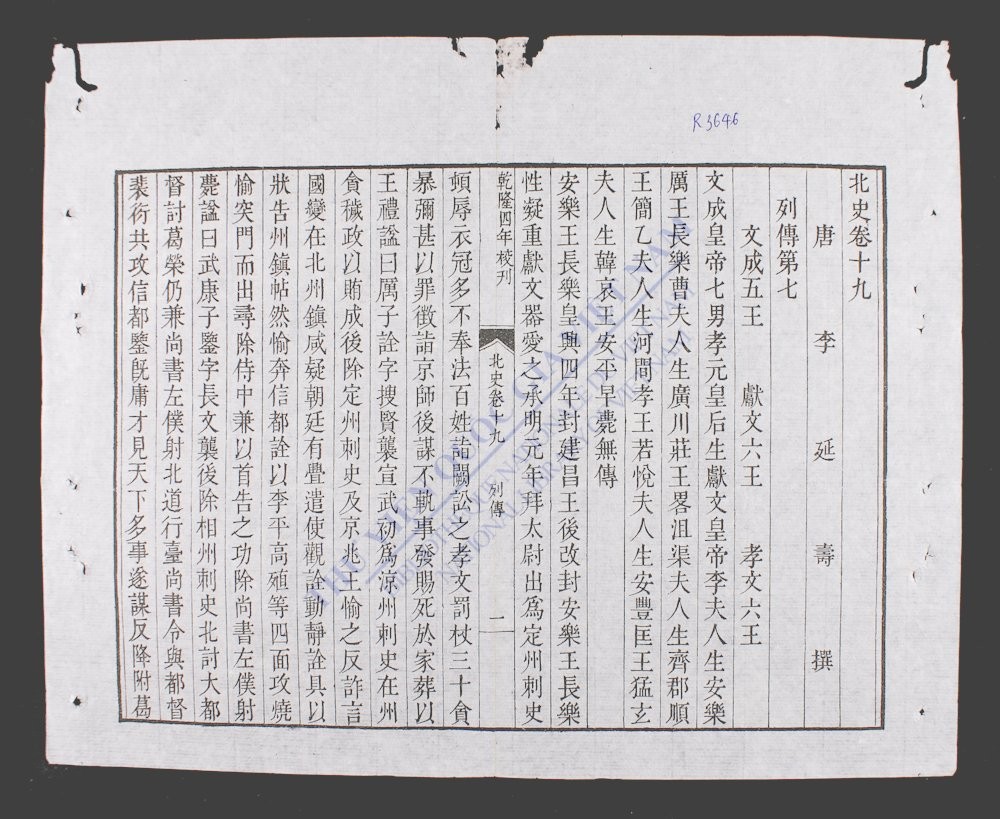 R3646
北史卷十九
唐 李 延 壽 撰
列傳第七
文成五王 獻文六王 孝文六王
文成皇帝七男孝元皇后生獻文皇帝李夫人生安樂
厲王長樂曹夫人生廣川莊王畧沮渠夫人生齊郡順
王簡乙夫人生河間孝王若悅夫人生安豐匡王猛玄
夫人生韓哀王安平早薨無傳
安樂王長樂皇興四年封建昌王後改封安樂王長樂
性凝重獻文器愛之承明元年拜太尉出爲定州刺史
乾隆四年校刊
北史卷十九 列傳 一
頓辱衣冠多不奉法百姓詣闕訟之孝文罰杖三十貪
暴彌甚以罪徵詣京師後謀不軌事發賜死於家葬以
王禮諡曰厲子詮字搜賢襲宣武初爲涼州刺史在州
貪穢政以賄成後除定州刺史及京兆王愉之反詐言
國變在北州鎮咸疑朝廷有釁遣使觀詮動靜詮具以
狀告州鎮帖然愉奔信都詮以李平高殖等四面攻燒
愉突門而出尋除侍中兼以首告之功除尚書左僕射
薨諡曰武康子鑒字長文襲後除相州刺史北討大都
督討葛榮仍兼尚書左僕射北道行臺尚書令與都督
裴衍共攻信都鑒旣庸才見天下多事遂謀反降附葛
THU VIEN QUOC GIA VIET NAM
BIBLIOTHEQUE NATIONALE DU VIETNAM
NATIONAL LIBRARY OF VIETNAM